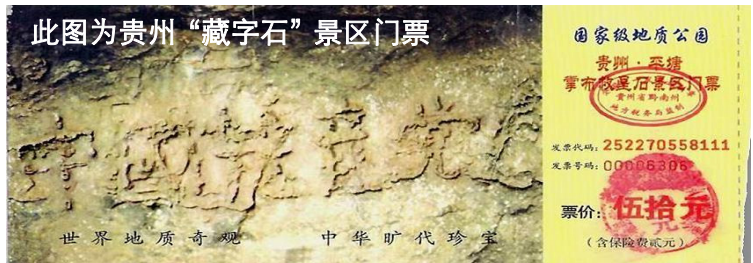 此图为贵州“藏字石”景区门票
中國共產党亡
世界地质奇观 中华旷代珍宝
国家级地质公园
贵州·平塘
掌布救星石景区门票
贵州省黔南州
地方税务局监制
发票代码：252270558111
发票号码：00006306
票价：伍拾元
（含保险费贰元）